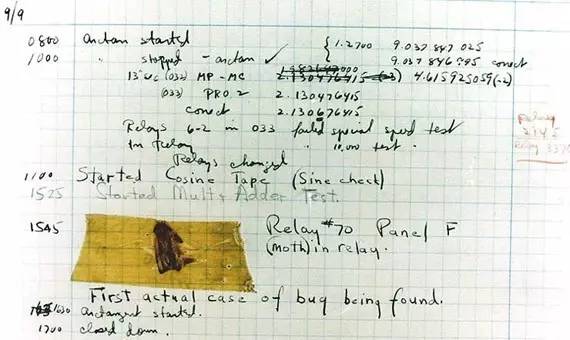 9/9
0800 antan started { 1.2700 9.037 847 025
1000 " stopped - antan ✓ 9.037 846 995 correct
13"uc (032) MP - MC 2.130476415 4.615925059(-2)
(033) PRO 2 2.130476415
correct 2.130676415
Relays 6-2 in 033 failed special speed test
In Relay " 10,000 test.
Relay
2145
Relay 3370
Relays changed
1100 Started Cosine Tape (Sine check)
1525 Started Mult+Adder Test.
1545 Relay #70 Panel F
(moth) in relay.
First actual case of bug being found.
1630 antangent started.
1700 closed down.